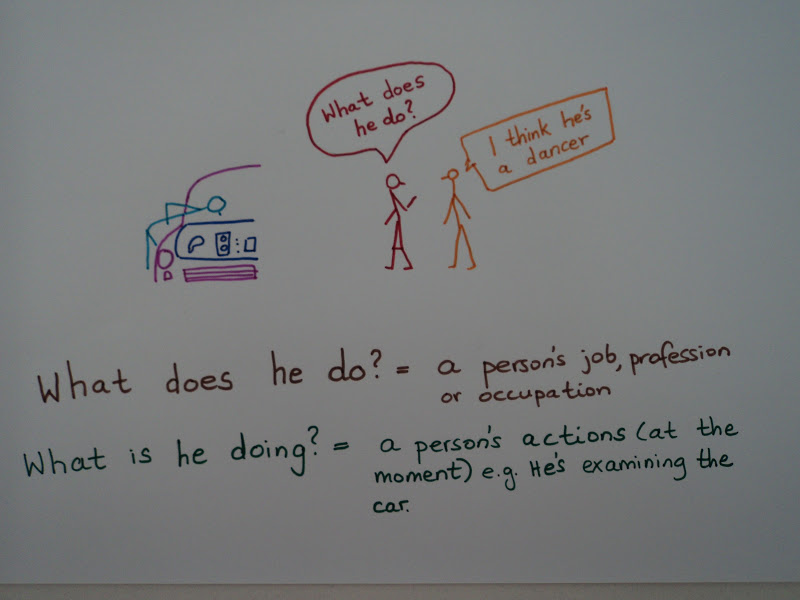 What does
he do?
I think he's
a dancer
What does he do? = a person's job, profession
or occupation
What is he doing? = a person's actions (at the
moment) e.g. He's examining the
car.